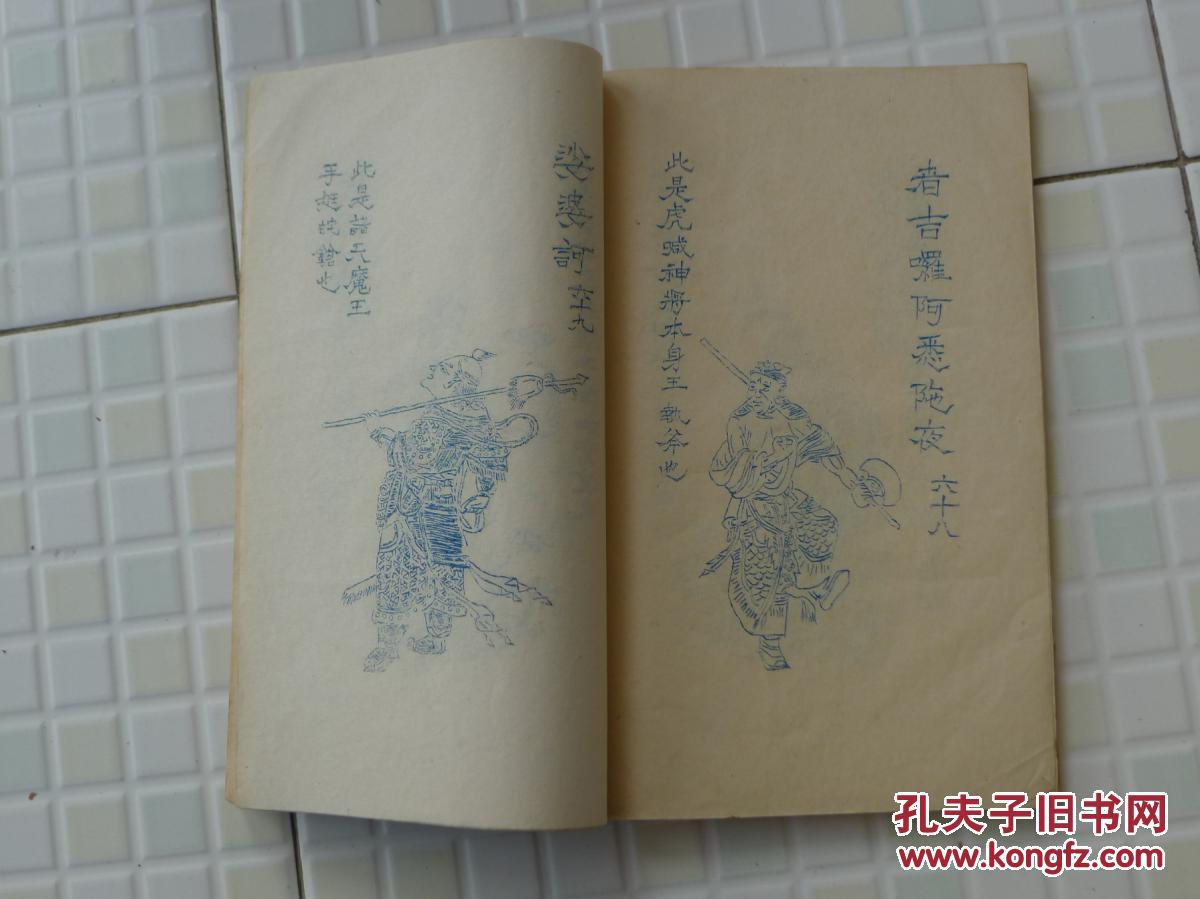 者吉囉阿悉陁夜 六十八
此是虎喊神將本身王 執斧也
娑婆訶 六十九
此是諸天魔王
手 鎗也
孔夫子旧书网
www.kongfz.com